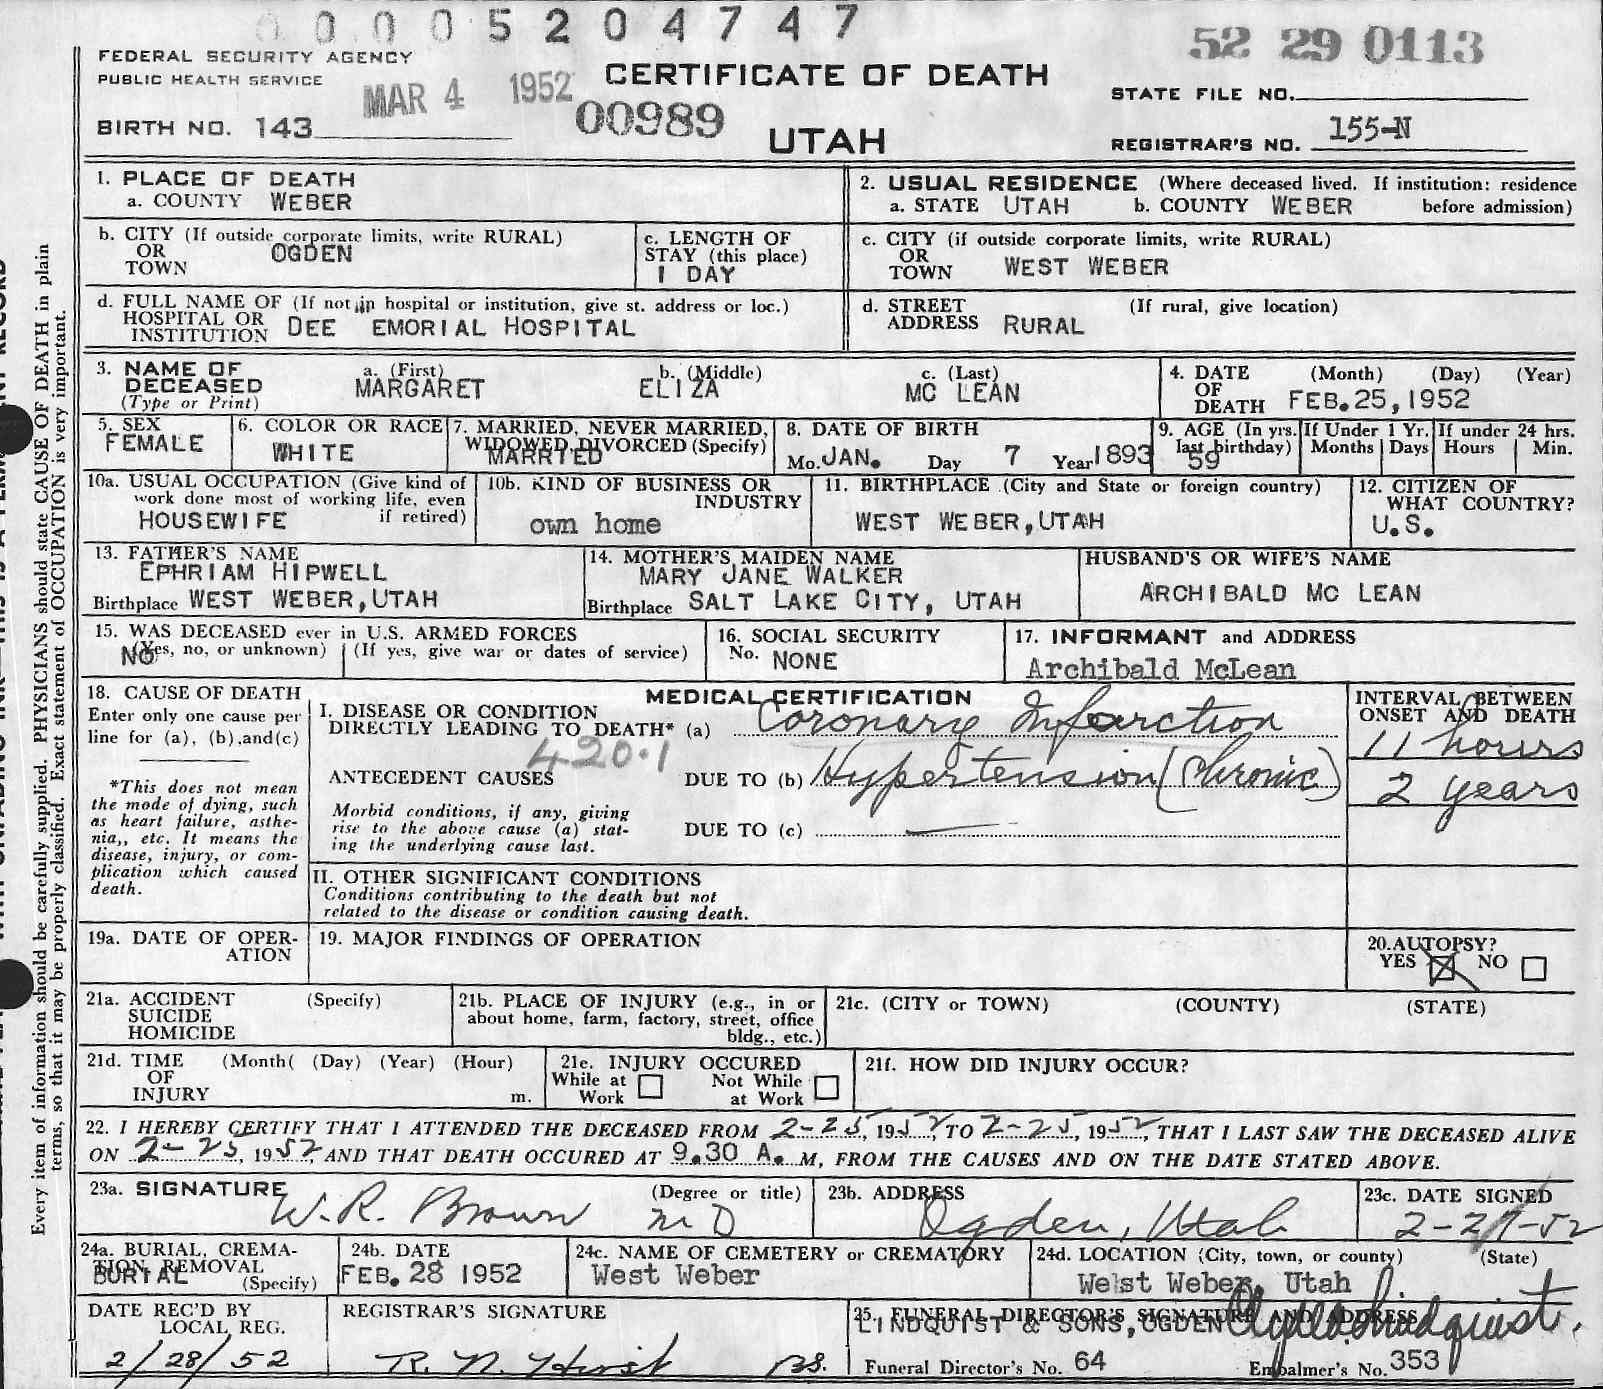 0 0 0 0 5 2 0 4 7 4 7
52 29 0113
FEDERAL SECURITY AGENCY
PUBLIC HEALTH SERVICE
MAR 4 1952
CERTIFICATE OF DEATH
STATE FILE NO.
BIRTH NO. 143
00989
UTAH
REGISTRAR'S NO. 155-N
1. PLACE OF DEATH
a. COUNTY WEBER
2. USUAL RESIDENCE (Where deceased lived. If institution: residence
a. STATE UTAH b. COUNTY WEBER before admission)
b. CITY (If outside corporate limits, write RURAL)
OR
TOWN OGDEN
c. LENGTH OF
STAY (this place)
1 DAY
c. CITY (if outside corporate limits, write RURAL)
OR
TOWN WEST WEBER
d. FULL NAME OF (If not in hospital or institution, give st. address or loc.)
HOSPITAL OR
INSTITUTION DEE EMORIAL HOSPITAL
d. STREET (If rural, give location)
ADDRESS RURAL
3. NAME OF
DECEASED
(Type or Print)
a. (First)
MARGARET
b. (Middle)
ELIZA
c. (Last)
MC LEAN
4. DATE (Month) (Day) (Year)
OF
DEATH FEB.25,1952
5. SEX
FEMALE
6. COLOR OR RACE
WHITE
7. MARRIED, NEVER MARRIED,
WIDOWED, DIVORCED (Specify)
MARRIED
8. DATE OF BIRTH
Mo. JAN. Day 7 Year 1893
9. AGE (In yrs. last birthday)
59
If Under 1 Yr.
Months Days
If under 24 hrs.
Hours Min.
10a. USUAL OCCUPATION (Give kind of
work done most of working life, even
HOUSEWIFE if retired)
10b. KIND OF BUSINESS OR
INDUSTRY
own home
11. BIRTHPLACE (City and State or foreign country)
WEST WEBER,UTAH
12. CITIZEN OF
WHAT COUNTRY?
U.S.
13. FATHER'S NAME
EPHRIAM HIPWELL
Birthplace WEST WEBER,UTAH
14. MOTHER'S MAIDEN NAME
MARY JANE WALKER
Birthplace SALT LAKE CITY, UTAH
HUSBAND'S OR WIFE'S NAME
ARCHIBALD MC LEAN
15. WAS DECEASED ever in U.S. ARMED FORCES
NO (Yes, no, or unknown) (If yes, give war or dates of service)
16. SOCIAL SECURITY
No. NONE
17. INFORMANT and ADDRESS
Archibald McLean
18. CAUSE OF DEATH
Enter only one cause per
line for (a), (b),and(c)
*This does not mean
the mode of dying, such
as heart failure, asthe-
nia,, etc. It means the
disease, injury, or com-
plication which caused
death.
MEDICAL CERTIFICATION
I. DISEASE OR CONDITION
DIRECTLY LEADING TO DEATH* (a) Coronary Infarction
420.1
ANTECEDENT CAUSES DUE TO (b) Hypertension (Chronic)
Morbid conditions, if any, giving
rise to the above cause (a) stat-
ing the underlying cause last.
DUE TO (c)
INTERVAL BETWEEN
ONSET AND DEATH
11 hours
2 years
II. OTHER SIGNIFICANT CONDITIONS
Conditions contributing to the death but not
related to the disease or condition causing death.
19a. DATE OF OPER-
ATION
19. MAJOR FINDINGS OF OPERATION
20.AUTOPSY?
YES NO
21a. ACCIDENT (Specify)
SUICIDE
HOMICIDE
21b. PLACE OF INJURY (e.g., in or
about home, farm, factory, street, office
bldg., etc.)
21c. (CITY or TOWN) (COUNTY) (STATE)
21d. TIME (Month( (Day) (Year) (Hour)
OF
INJURY m.
21e. INJURY OCCURED
While at Work
Not While at Work
21f. HOW DID INJURY OCCUR?
22. I HEREBY CERTIFY THAT I ATTENDED THE DECEASED FROM 2-25, 1952, TO 2-25, 1952, THAT I LAST SAW THE DECEASED ALIVE
ON 2-25, 1952, AND THAT DEATH OCCURED AT 9.30 A. M, FROM THE CAUSES AND ON THE DATE STATED ABOVE.
23a. SIGNATURE (Degree or title)
W. R. Brown MD
23b. ADDRESS
Ogden, Utah
23c. DATE SIGNED
2-27-52
24a. BURIAL, CREMA-
TION, REMOVAL
(Specify)
BURIAL
24b. DATE
FEB. 28 1952
24c. NAME OF CEMETERY or CREMATORY
West Weber
24d. LOCATION (City, town, or county) (State)
Welst Weber, Utah
DATE REC'D BY
LOCAL REG.
2/28/52
REGISTRAR'S SIGNATURE
R. N. Hirst BS.
25. FUNERAL DIRECTOR'S SIGNATURE AND ADDRESS
LINDQUIST & SONS, OGDEN Clyde Lindquist.
Funeral Director's No. 64 Embalmer's No. 353
Every item of information should be carefully supplied. PHYSICIANS should state CAUSE OF DEATH in plain
terms, so that it may be properly classified. Exact statement of OCCUPATION is very important.